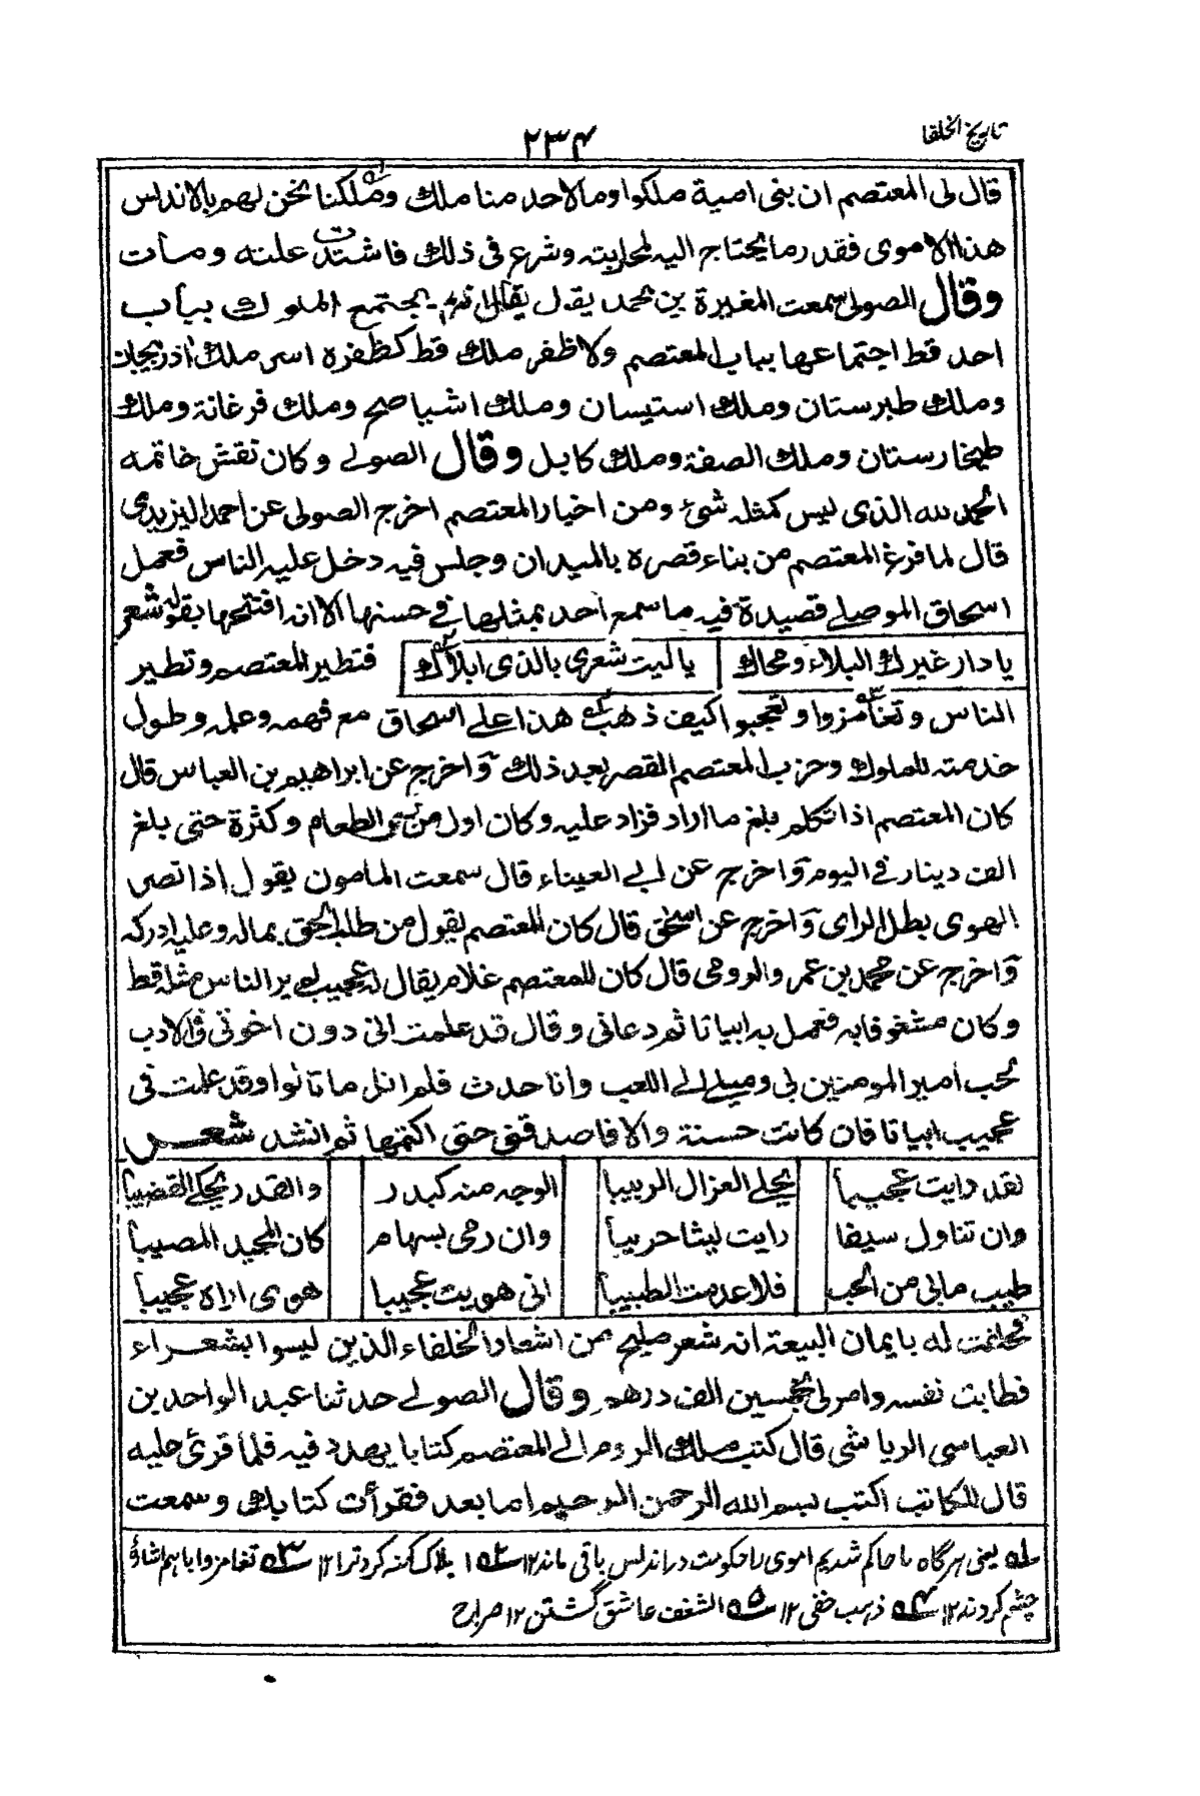 تاریخ الخلفا
۲۳۴
قال لی المعتصم ان بنی امیة ملکوا وما لاحد منا ملك وملکنا نحن لهم بالاندلس
هذا الاموی فقدر ما یحتاج الیه لمحاربته وشرع فی ذلك فاشتدت علته ومات
وقال الصولی سمعت المغیرة بن محمد یقول یقال انه لم یجتمع الملوك بباب
احد قط اجتماعها بباب المعتصم ولا ظفر ملك قط کظفره اسر ملك اذربیجان
وملك طبرستان وملك استیسان وملك اشیاصح وملك فرغانة وملك
طخارستان وملك الصفة وملك کابل وقال الصولے وکان نقش خاتمه
الحمد لله الذی لیس کمثله شئ ومن اخبار المعتصم اخرج الصولی عن احمد الیزیدی
قال لما فرغ المعتصم من بناء قصره بالمیدان وجلس فیه دخل علیه الناس فعمل
اسحاق الموصلے قصیدة فیه ما سمع احد بمثلها فے حسنها الا انه افتتحها بقوله شعر
یا دار غیرك البلاء ومحاك یا لیت شعری بالذی ابلاك فتطیر المعتصم وتطیر
الناس وتغامزوا وتعجبوا کیف ذهب هذا علے اسحاق مع فهمه وعلمه وطول
خدمته للملوك وخرب المعتصم القصر بعد ذلك واخرج عن ابراهیم بن العباس قال
کان المعتصم اذا تکلم بلغ ما اراد فزاد علیه وکان اول من الطعام وکثرة حتی بلغ
الف دینار فے الیوم واخرج عن ابے العیناء قال سمعت المامون یقول اذا نصر
الهوی بطل الرای واخرج عن اسحٰق قال کان المعتصم یقول من طلب الحق بماله وعلیه ادرکه
واخرج عن محمد بن عمر والرومی قال کان للمعتصم غلام یقال له عجیب لم یر الناس مثله قط
وکان مشغوفا به فعمل به ابیاتا ثم دعانی وقال قد علمت انی دون اخوتی فی الادب
لحب امیر المومنین لی ومیلے الی اللعب وانا حدث فلم انل ما نالوا وقد علمت فی
عجیب ابیاتا فان کانت حسنة والا فاصدقنی حتی اکتمها ثم انشد شعر
لقد رایت عجیبا یحکے الغزال الربیبا الوجه منه کبدر والقد یحکے القضیبا
وان تناول سیفا رایت لیثا حریبا وان رمی بسهام کان المجید المصیبا
طبیب مابی من الحب فلا عدمت الطبیبا انی هویت عجیبا هوی اراه عجیبا
فحلفت له بایمان البیعة انه شعر ملیح من اشعار الخلفاء الذین لیسوا بشعراء
فطابت نفسه وامر لی بخمسین الف درهم وقال الصولے حدثنا عبد الواحد بن
العباسی الریاشی قال کتب ملك الروم الے المعتصم کتابا یهدد فیه فلما قرئ علیه
قال للکاتب اکتب بسم الله الرحمن الرحیم اما بعد فقرأت کتابك وسمعت
ــه یعنی هرگاه ما حاکم شدیم اموی را حکومت در اندلس باقی ماند ۱۲ ۲ــه ابلاک کهنه کرد ترا ۱۲ ۳ــه تغامزوا باهم اشارۂ
چشم کردند ۱۲ ۴ــه ذهب خفی ۱۲ ۵ــه الشغف عاشق گشتن ۱۲ صراح